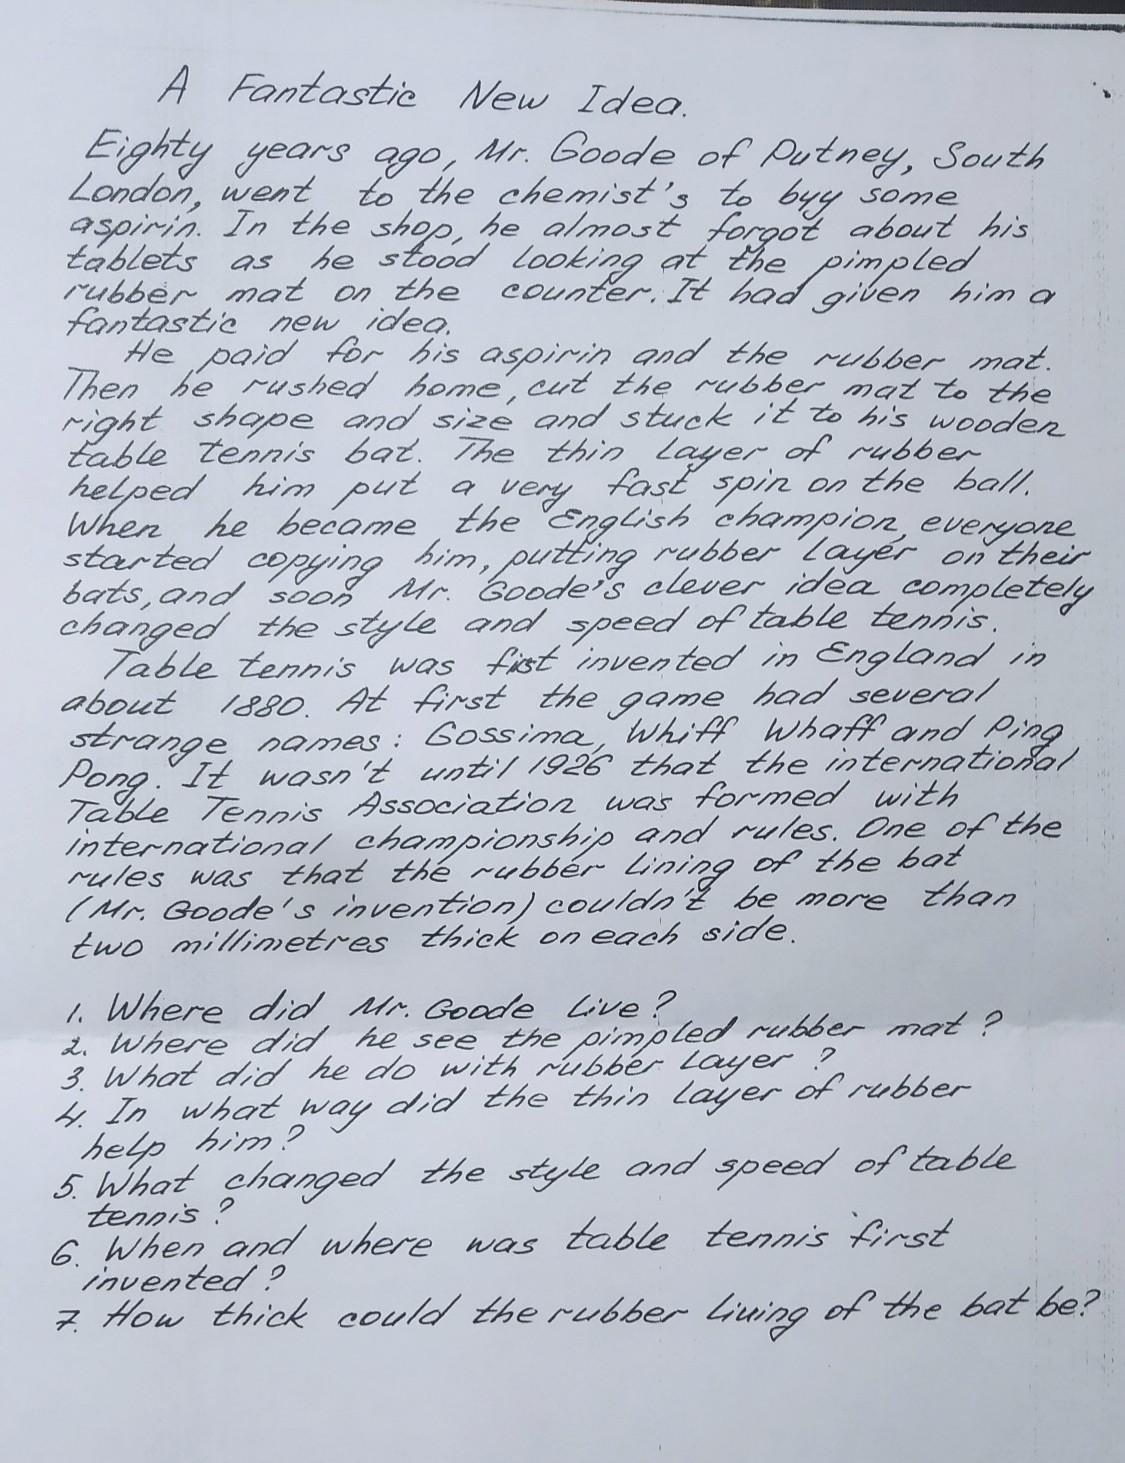 A Fantastic New Idea.
Eighty years ago, Mr. Goode of Putney, South
London, went to the chemist's to buy some
aspirin. In the shop, he almost forgot about his
tablets as he stood looking at the pimpled
rubber mat on the counter. It had given him a
fantastic new idea.
He paid for his aspirin and the rubber mat.
Then he rushed home, cut the rubber mat to the
right shape and size and stuck it to his wooden
table tennis bat. The thin layer of rubber
helped him put a very fast spin on the ball.
When he became the English champion, everyone
started copying him, putting rubber layer on their
bats, and soon Mr. Goode's clever idea completely
changed the style and speed of table tennis.
Table tennis was first invented in England in
about 1880. At first the game had several
strange names: Gossima, Whiff Whaff and Ping
Pong. It wasn't until 1926 that the international
Table Tennis Association was formed with
international championship and rules. One of the
rules was that the rubber lining of the bat
(Mr. Goode's invention) couldn't be more than
two millimetres thick on each side.
1. Where did Mr. Goode live?
2. Where did he see the pimpled rubber mat?
3. What did he do with rubber layer?
4. In what way did the thin layer of rubber
help him?
5. What changed the style and speed of table
tennis?
6. When and where was table tennis first
invented?
7. How thick could the rubber lining of the bat be?